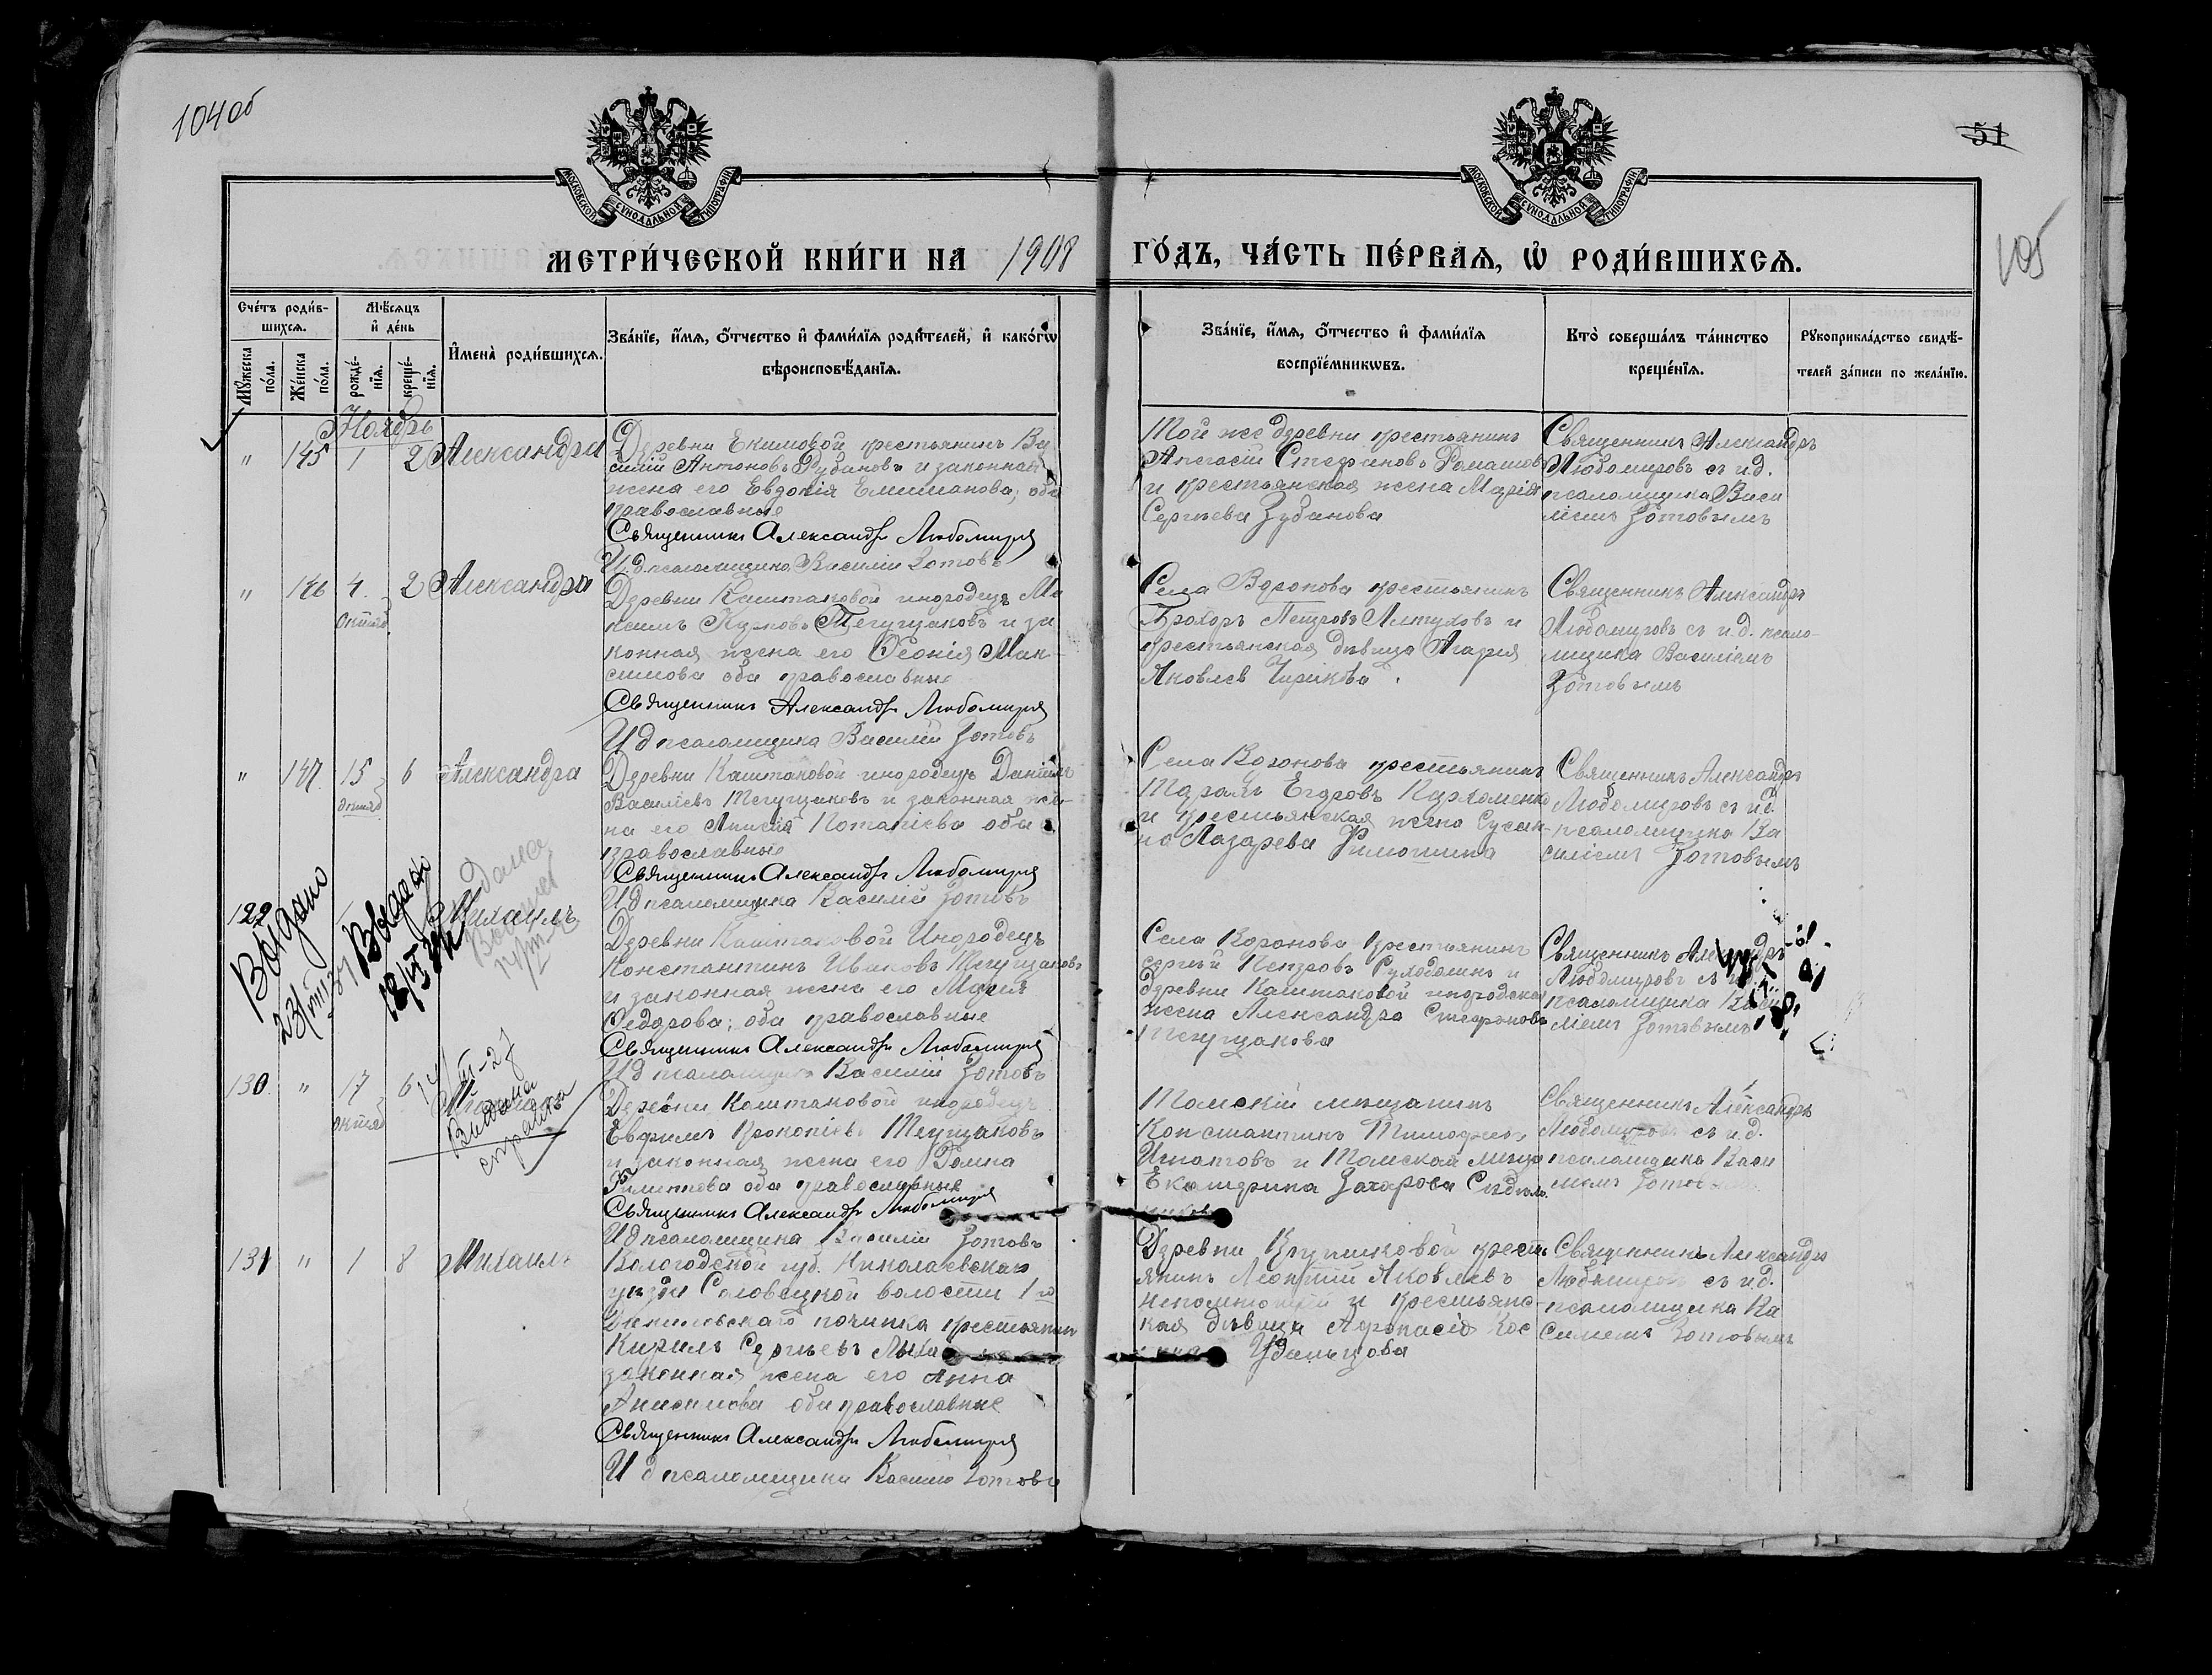 104 об
51
105
МОСКОВСКОЙ СѴНОДАЛЬНОЙ ТИПОГРАФІИ
МОСКОВСКОЙ СѴНОДАЛЬНОЙ ТИПОГРАФІИ
МЕТРИ́ЧЕСКОЙ КНИ́ГИ НА 1908 ГО́ДЪ, ЧА́СТЬ ПЕ́РВАѦ, Ѡ҆ РОДИ́ВШИХСѦ.
Сче́тъ роди́в-
шихсѧ.
Мꙋ́жеска по́ла.
Же́нска по́ла.
Мѣ́сѧцъ и҆ де́нь
рожде́-нїѧ.
креще́-нїѧ.
И҆мена̀ роди́вшихсѧ.
Зва́нїе, и҆́мѧ, ѻ҆́тчество и҆ фами́лїѧ роди́телей, и҆ како́гѡ
вѣроисповѣ́данїѧ.
Зва́нїе, и҆́мѧ, ѻ҆́тчество и҆ фами́лїѧ
воспрїе́мникѡвъ.
Кто̀ соверша́лъ та́инство
креще́нїѧ.
Рꙋкоприкла́дство свидѣ́-
телей за́писи по жела́нїю.
Ноябрь
" 145 1 2 Александра
Деревни Екимовой крестьянинъ Ва
силій Антоновъ и законная
жена его Евдокія Емельянова; оба
православные
Священникъ Александръ Любомиров
И д псаломщика Василій Зотовъ
Той же деревни крестьянинъ
Стефановъ Ромашовъ
и крестьянская жена Марія
Сергѣева Зубанова
Священникъ Александръ
Любомировъ съ и.д.
псаломщика Васи
ліемъ Зотовымъ
" 146 4 2 Александра
октяб.
Деревни Каштаковой инородецъ Ма
ксимъ Тегущаковъ и за
конная жена его Мак-
симова оба православные
Священникъ Александръ Любомиров
И д псаломщика Василій Зотовъ
Села Воронова крестьянинъ
Прохоръ Петровъ и
крестьянская дѣвица Марія
Яковлев Чирикова
Священникъ Александръ
Любомировъ съ и.д. псало-
мщика Василіемъ
Зотовымъ
" 147 15 6 Александра
октяб
Деревни Каштаковой инородецъ Даніилъ
Василіевъ Тегущаковъ и законная же-
на его Анисія Потапіева оба
православные
Священникъ Александръ Любомиров
И д псаломщика Василій Зотовъ
Села Воронова крестьянинъ
Егоровъ Пархоменко
и крестьянская жена Сусан-
на Лазарева Филюшина
Священникъ Александръ
Любомировъ съ и.д.
псаломщика Ва
силіемъ Зотовымъ
129 Михаилъ
Выдано
Выдано
Деревни Каштаковой Инородецъ
Константинъ Ивановъ Тегущаковъ
и законная жена его Марія
Ѳедорова; оба православные
Священникъ Александръ Любомиров
И д псаломщика Василій Зотовъ
Села Воронова крестьянинъ
Сергѣй Петровъ и
деревни Каштаковой инородческая
жена Александра Стефанова
Тегущакова
Священникъ Александръ
Любомировъ съ и.д.
псаломщика Васи
ліемъ Зотовымъ
130 " 17 6
октяб
Выдана
справка
Деревни Каштаковой инородецъ
Евфимъ Прокопіевъ Тегущаковъ
и законная жена его Домна
Филиппова оба православные
Священникъ Александръ Любомиров
И д псаломщика Василій Зотовъ
Томскій мѣщанинъ
Константинъ Тимофеевъ
Игнатовъ и Томская мѣща
Екатерина Захарова
Священникъ Александръ
Любомировъ съ и.д.
псаломщика Васи
ліемъ Зотовымъ
131 " 1 8 Михаилъ
Вологодской губ. Николаевскаго
уѣзда Соловецкой волости 1 го
Даниловскаго починка крестьянин
Кирилъ Сергѣевъ
законная жена его Анна
Анисимова оба православные
Священникъ Александръ Любомиров
И д псаломщика Василій Зотовъ
Деревни крест
янинъ Леонтій Яковлевъ
Непомнющій и крестьянс-
кая дѣвица Афонасія Кос
Удальцова
Священникъ Александръ
Любомировъ съ и.д.
псаломщика Ва
силіемъ Зотовымъ